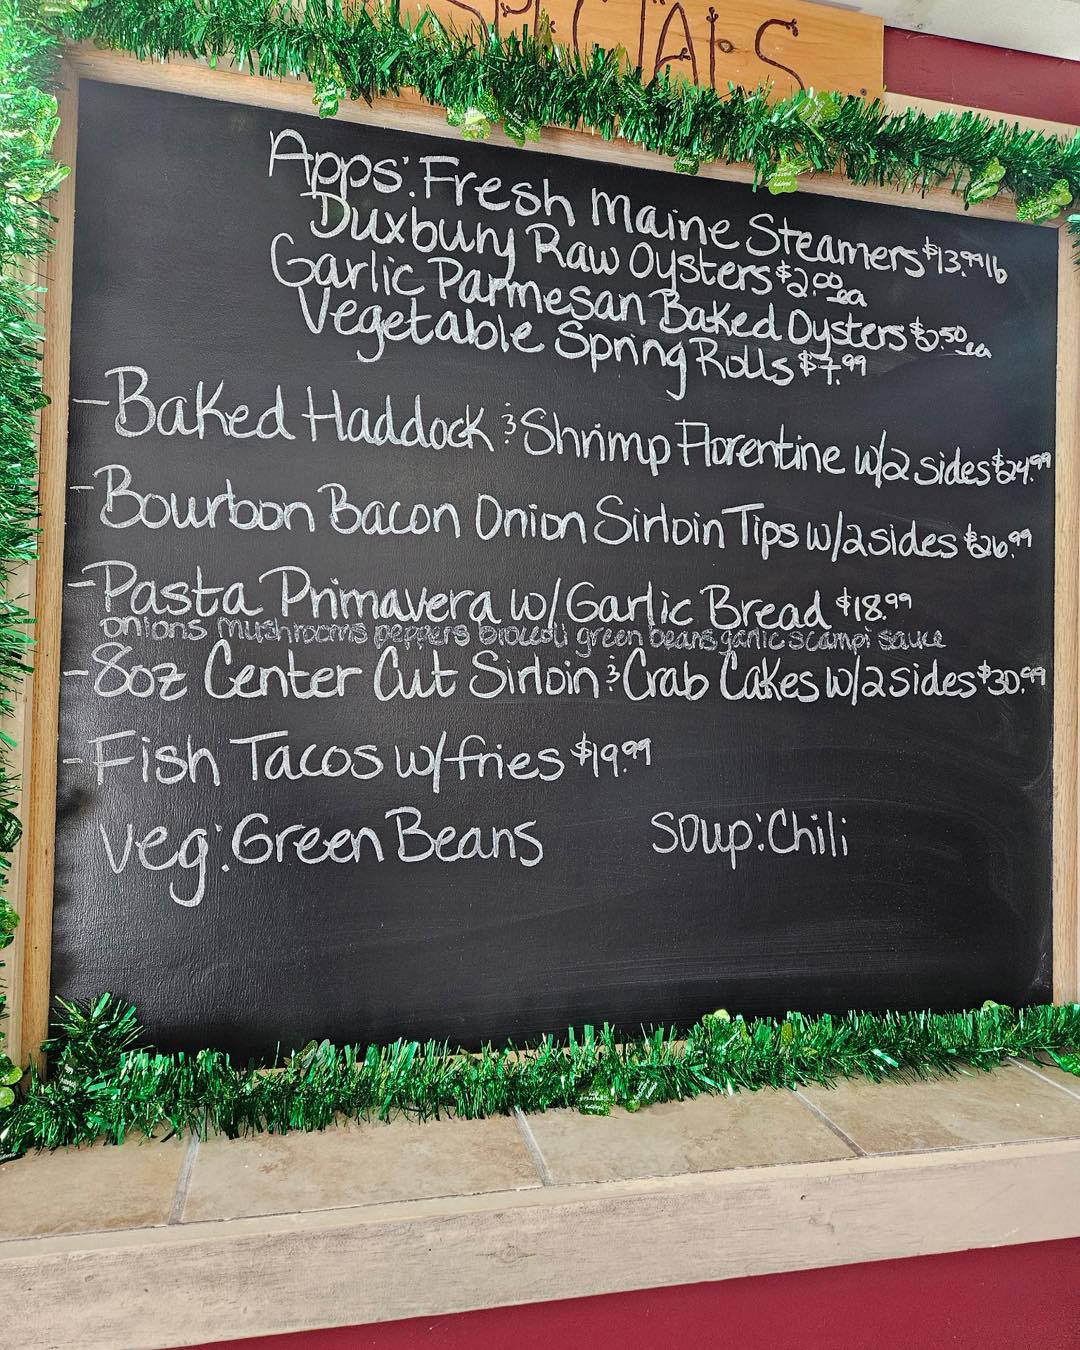 SPECIALS
Apps: Fresh Maine Steamers $13.99 lb
Duxbury Raw Oysters $2.00 ea
Garlic Parmesan Baked Oysters .50 ea
Vegetable Spring Rolls $7.99
- Baked Haddock & Shrimp Florentine w/2 sides $24.99
- Bourbon Bacon Onion Sirloin Tips w/2 sides $26.99
- Pasta Primavera w/ Garlic Bread $18.99
onions mushrooms peppers broccoli green beans garlic scampi sauce
- 8oz Center Cut Sirloin & Crab Cakes w/2 sides $30.99
- Fish Tacos w/fries $19.99
Veg: Green Beans
Soup: Chili